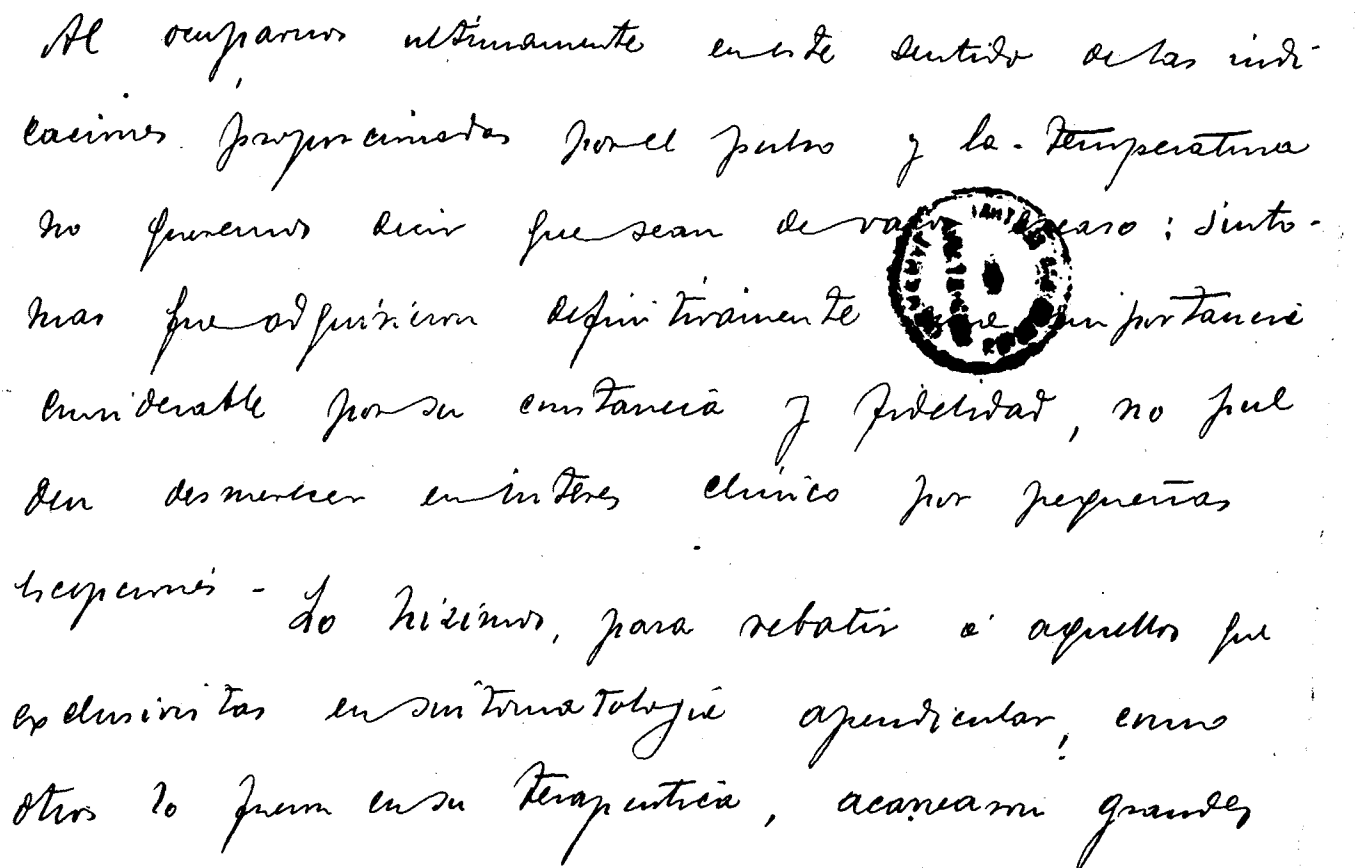 Al ocuparnos ultimamente en este sentido de las indi-
caciones proporcionadas por el pulso y la temperatura
no queremos decir que sean de valor escaso; sinto-
mas que adquirieron definitivamente una importancia
considerable por su constancia y fidelidad, no pue
den desmerecer en interes clínico por pequeñas
escepciones - Lo hicimos, para rebatir á aquellos que
exclusivistas en sintomatologia apendicular, como
otros lo fueron en su terapeutica, acarrearon grandes